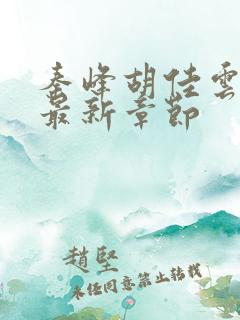 秦峰胡佳雲
最新章節
趙堅
未经同意禁止转载